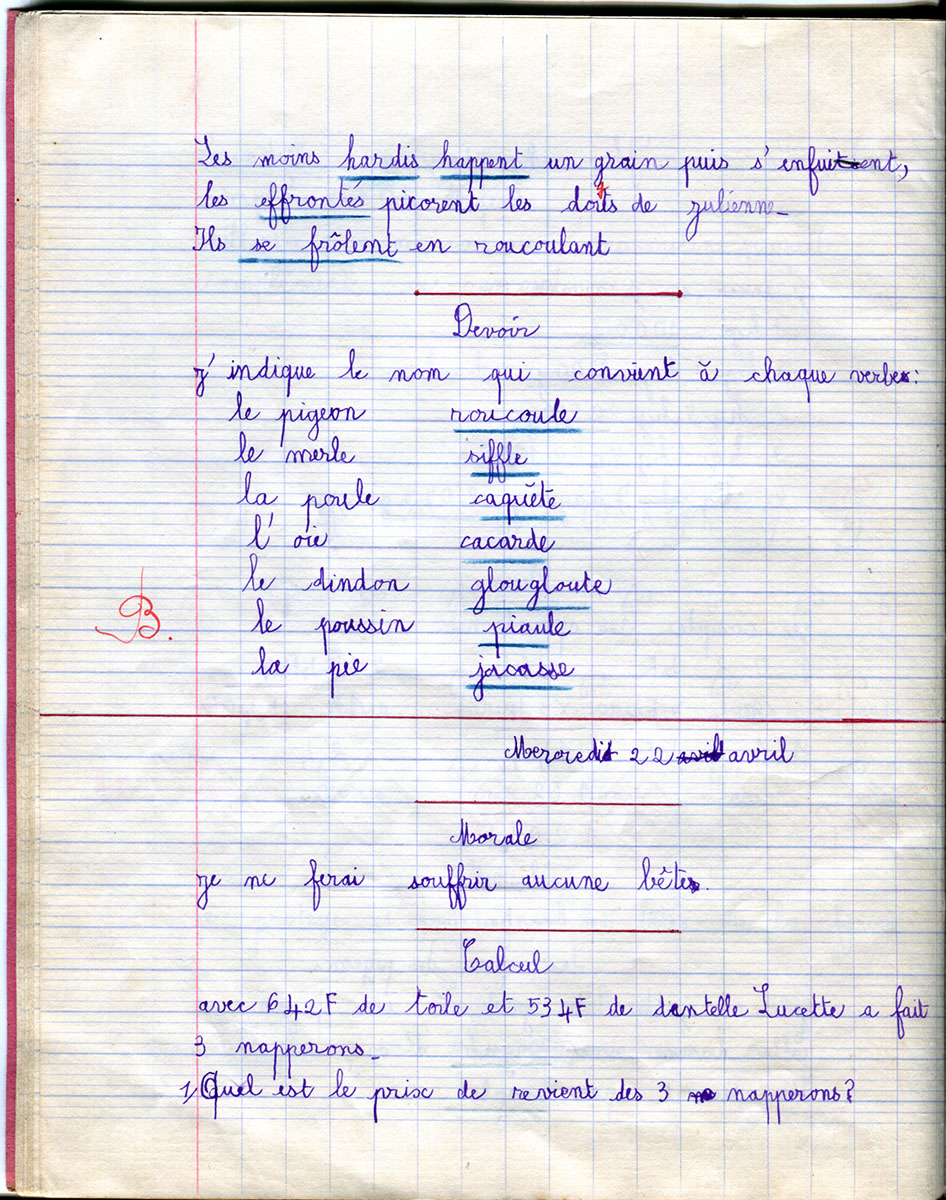 Les moins hardis happent un grain puis s'enfuient,
les effrontés picorent les doits de julienne_
Ils se frôlent en roucoulant
Devoir
j'indique le nom qui convient à chaque verbe:
le pigeon roucoule
le merle siffle
la poule caquète
l'oie cacarde
le dindon glougloute
le poussin piaule
B.
la pie jacasse
Mercredi 22 avril
Morale
je ne ferai souffrir aucune bête.
Calcul
avec 642F de toile et 534F de dentelle Lucette a fait
3 napperons_
1) Quel est le prix de revient des 3 napperons?